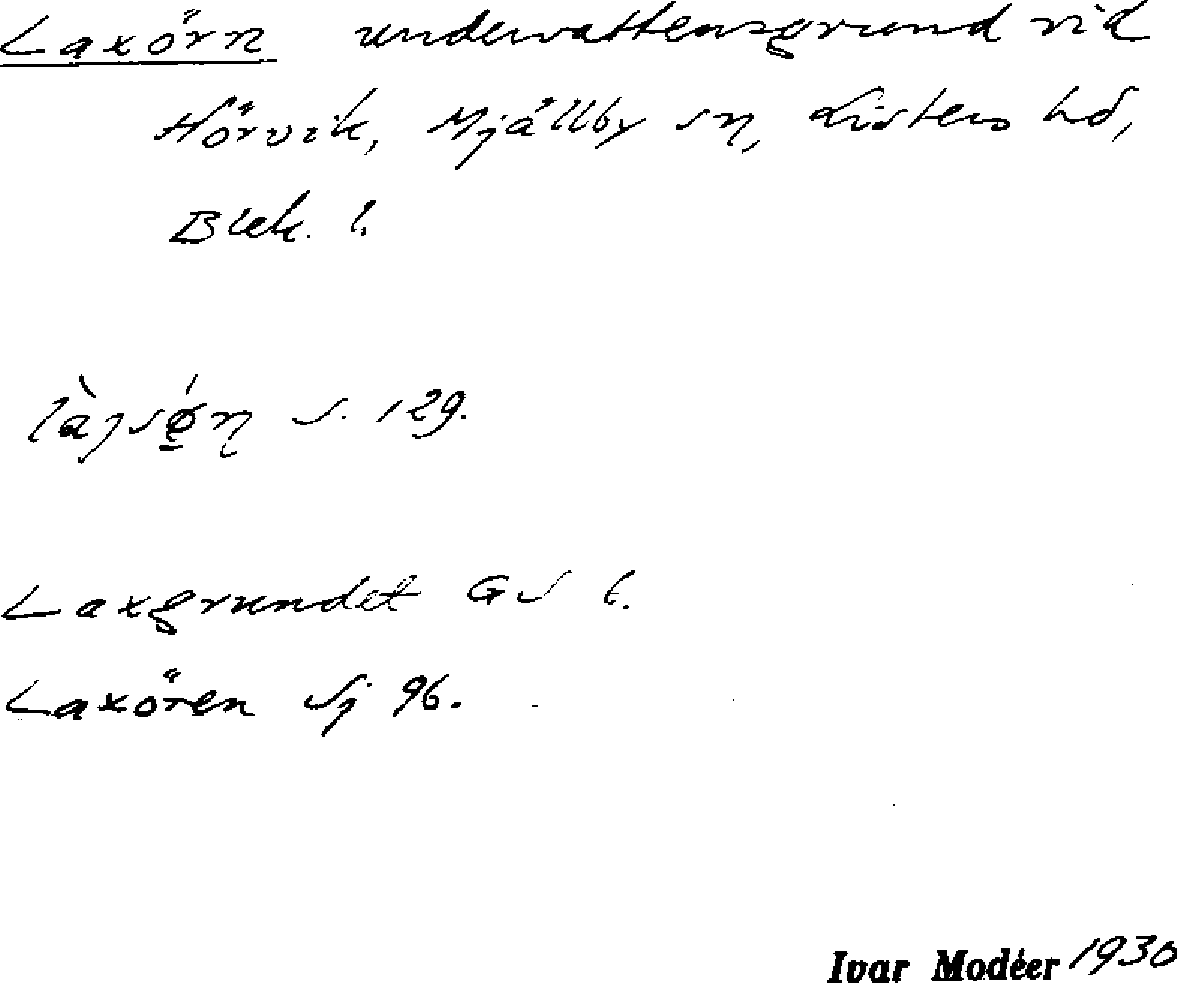 Laxörn undervattensgrund vid
Hörvik, Mjällby sn, Listers hd,
Blek. l.
s. 129.
Laxgrundet GS 6.
Laxören Sj 96.
Ivar Modéer 1930